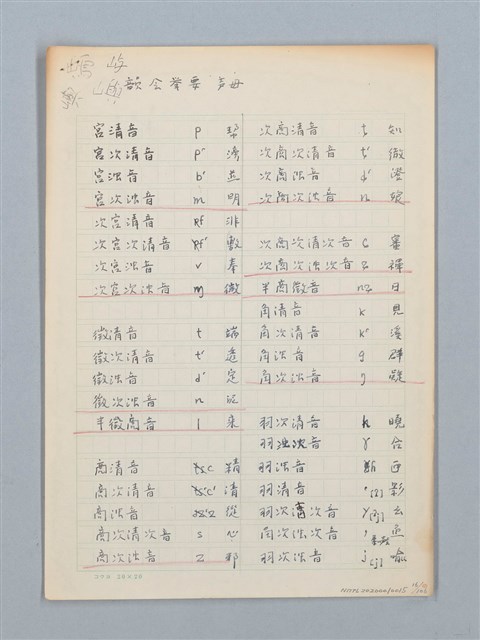 嶼
韻會舉要 声母
宮清音 p 幫
宮次清音 p' 滂
宮浊音 b' 並
宮次浊音 m 明
次宮清音 pf 非
次宮次清音 pf' 敷
次宮浊音 v 奉
次宮次浊音 ɱ 微
徵清音 t 端
徵次清音 t' 透
徵浊音 d' 定
徵次浊音 n 泥
半徵商音 l 來
商清音 精
商次清音 清
商浊音 從
商次清次音 s 心
商次浊音 z 邪
次商清音 知
次商次清音 徹
次商浊音 澄
次商次浊音 娘
次商次清次音 審
次商次浊次音 禪
半商徵音 日
角清音 k 見
角次清音 k' 溪
角浊音 g 群
角次浊音 ŋ 疑
羽次清音 h 曉
羽浊次音 ɣ 合
羽浊音 匣
羽清音 影
羽次次音 么
角次浊次音
羽次浊音 j 喻
コクヨ 20×20